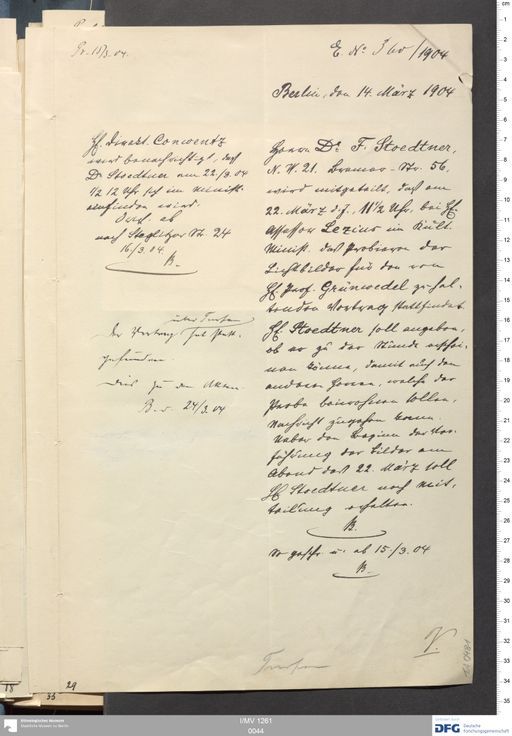 Pr. 15/3. 04.
E. No 360/1904
Berlin, den 14. März 1904
H. Direkt. Conwentz
wird benachrichtigt, daß
Dr Stoedtner am 22/3. 04
1/2 12 Uhr sich im Minist.
einfinden wird.
ab
nach Steglitzer Str. 24
16/3. 04.
B.
über Turfan
Der Vortrag hat statt-
gefunden.
Dies zu den Akten
B. 24/3. 04
Herrn Dr F. Stoedtner,
N. W. 21. Bremer-Str. 56,
wird mitgeteilt, daß am
22. März d. J., 11 1/2 Uhr, bei H.
Assessor Lezius im Kult.
Minist. das Probieren der
Lichtbilder für den von
H. Prof. Grünwedel zu hal-
tenden Vortrag stattfindet.
H. Stoedtner soll angeben,
ob er zu der Stunde erschei-
nen könne, damit auch den
anderen Herren, welche der
Probe beiwohnen sollen,
Nachricht zugehen kann.
Ueber den Beginn der Vor-
führung der Bilder am
Abend des 22. März soll
H. Stoedtner noch Mit-
teilung erhalten.
B.
geschr. u. ab 15/3. 04
B.
Turfan
V.
18
33
29
Ethnologisches Museum
Staatliche Museen zu Berlin
I/MV 1261
0044
DFG Deutsche
Forschungsgemeinschaft
cm
1
2
3
4
5
6
7
8
9
10
11
12
13
14
15
16
17
18
19
20
21
22
23
24
25
26
27
28
29
30
31
32
33
34
35